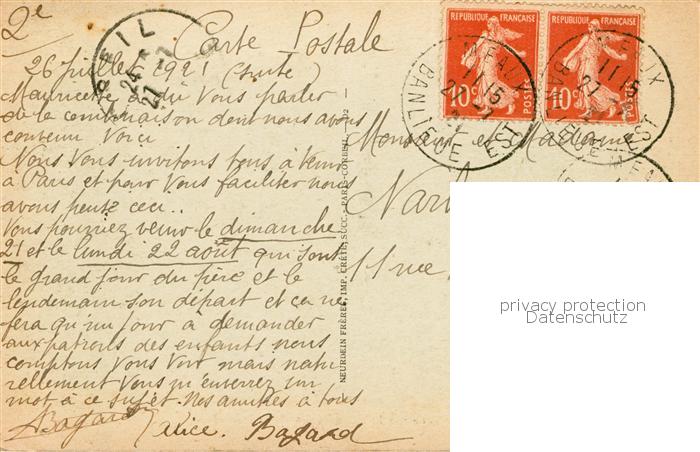 2e
Carte Postale
26 Juillet 1921 (suite)
Mauricette a dû vous parler
de la combinaison dont nous avons
convenu Voici
Nous vous invitons tous à venir
à Paris et pour vous faciliter nous
avons pensé ceci..
Vous pourriez venir le dimanche
21 et le lundi 22 août qui sont
le grand jour du père et le
lendemain son départ et ça ne
fera qu'un jour à demander
aux patrons des enfants nous
comptons vous voir mais natu
rellement vous m'enverrez un
mot à ce sujet. Nos amitiés à tous
Bagard Alice. Bagard
Monsieur et Madame
11 rue
NEURDEIN FRÈRES, IMP. CRÉTÉ, SUCC. - PARIS-CORBEIL
REPUBLIQUE FRANÇAISE
10c POSTES
REPUBLIQUE FRANÇAISE
10c POSTES
MEAUX
11 15
BANLIEUE EST
MEAUX
11 15
BANLIEUE EST
privacy protection
Datenschutz